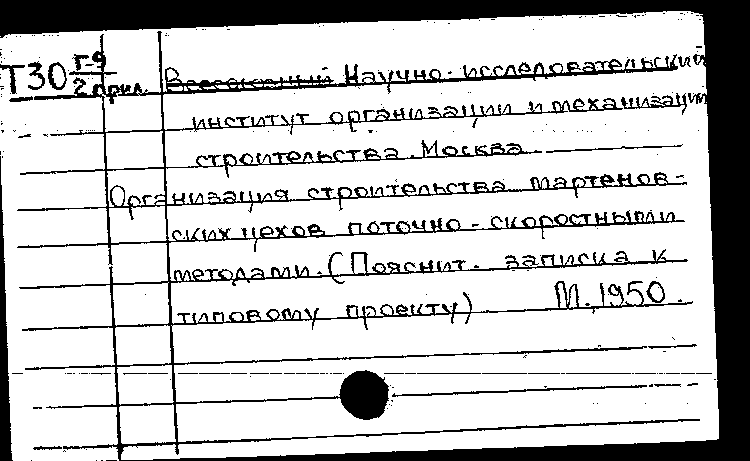 Т30 Г-9/2 прил. Всесоюзный Научно-исследовательский
институт организации и механизации
строительства. Москва
Организация строительства мартенов-
ских цехов поточно-скоростными
методами. (Пояснит. записка к
типовому проекту) М., 1950.